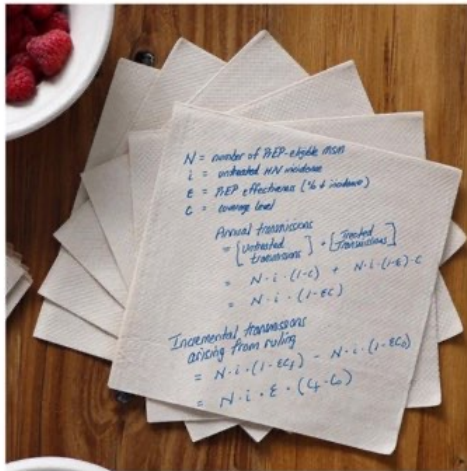 N = number of PrEP-eligible MSM
i = untreated HIV incidence
ε = PrEP effectiveness (% ↓ incidence)
c = coverage level
Annual transmissions
= [untreated transmissions] + [Treated Transmissions]
= N·i·(1-c) + N·i·(1-ε)·c
= N·i·(1-εc)
Incremental transmissions
arising from ruling
= N·i·(1-εC₁) - N·i·(1-εC₀)
= N·i·ε·(C₁-C₀)